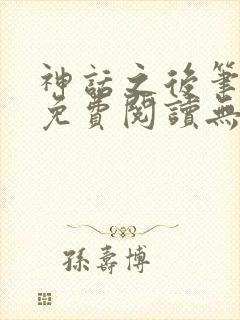 神話之後筆
免費閱讀無
孫壽博